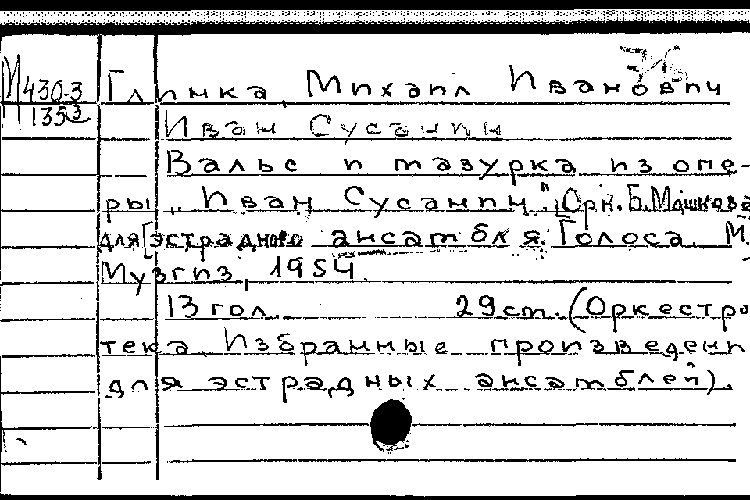 М430-3 Глинка, Михаил Иванович
1353
Иван Сусанин
Вальс и мазурка из опе-
ры „Иван Сусанин". Орк. Б. Машкова
для [эстрадного ансамбля. Голоса. М.,
Музгиз, 1954.
13 гол. 29 см. (Оркестро
тека. Избранные произведени
для эстрадных ансамблей).